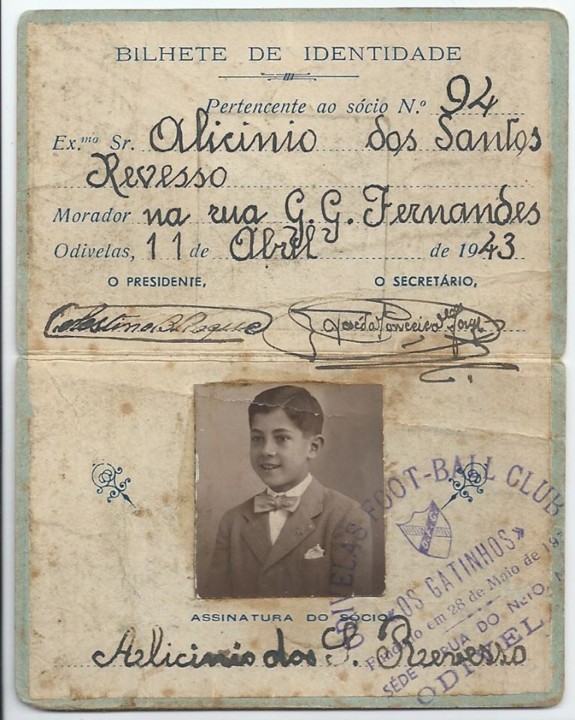 BILHETE DE IDENTIDADE
Pertencente ao sócio N.º 94
Ex.mº Sr. Alicinio dos Santos
Revesso
Morador na rua G. G. Fernandes
Odivelas, 11 de Abril de 1943
O PRESIDENTE,
O SECRETÁRIO,
ODIVELAS FOOT-BALL CLUB
«OS GATINHOS»
Fundado em 28 de Maio de 19
SÉDE RUA DO NETO,
ODIVEL
ASSINATURA DO SÓCIO
Alicinio dos S. Revesso